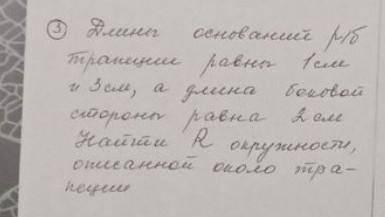 ③ Длины оснований р/б
трапеции равны 1 см
и 3 см, а длина боковой
стороны равна 2 см
Найти R окружности,
описанной около тра-
пеции